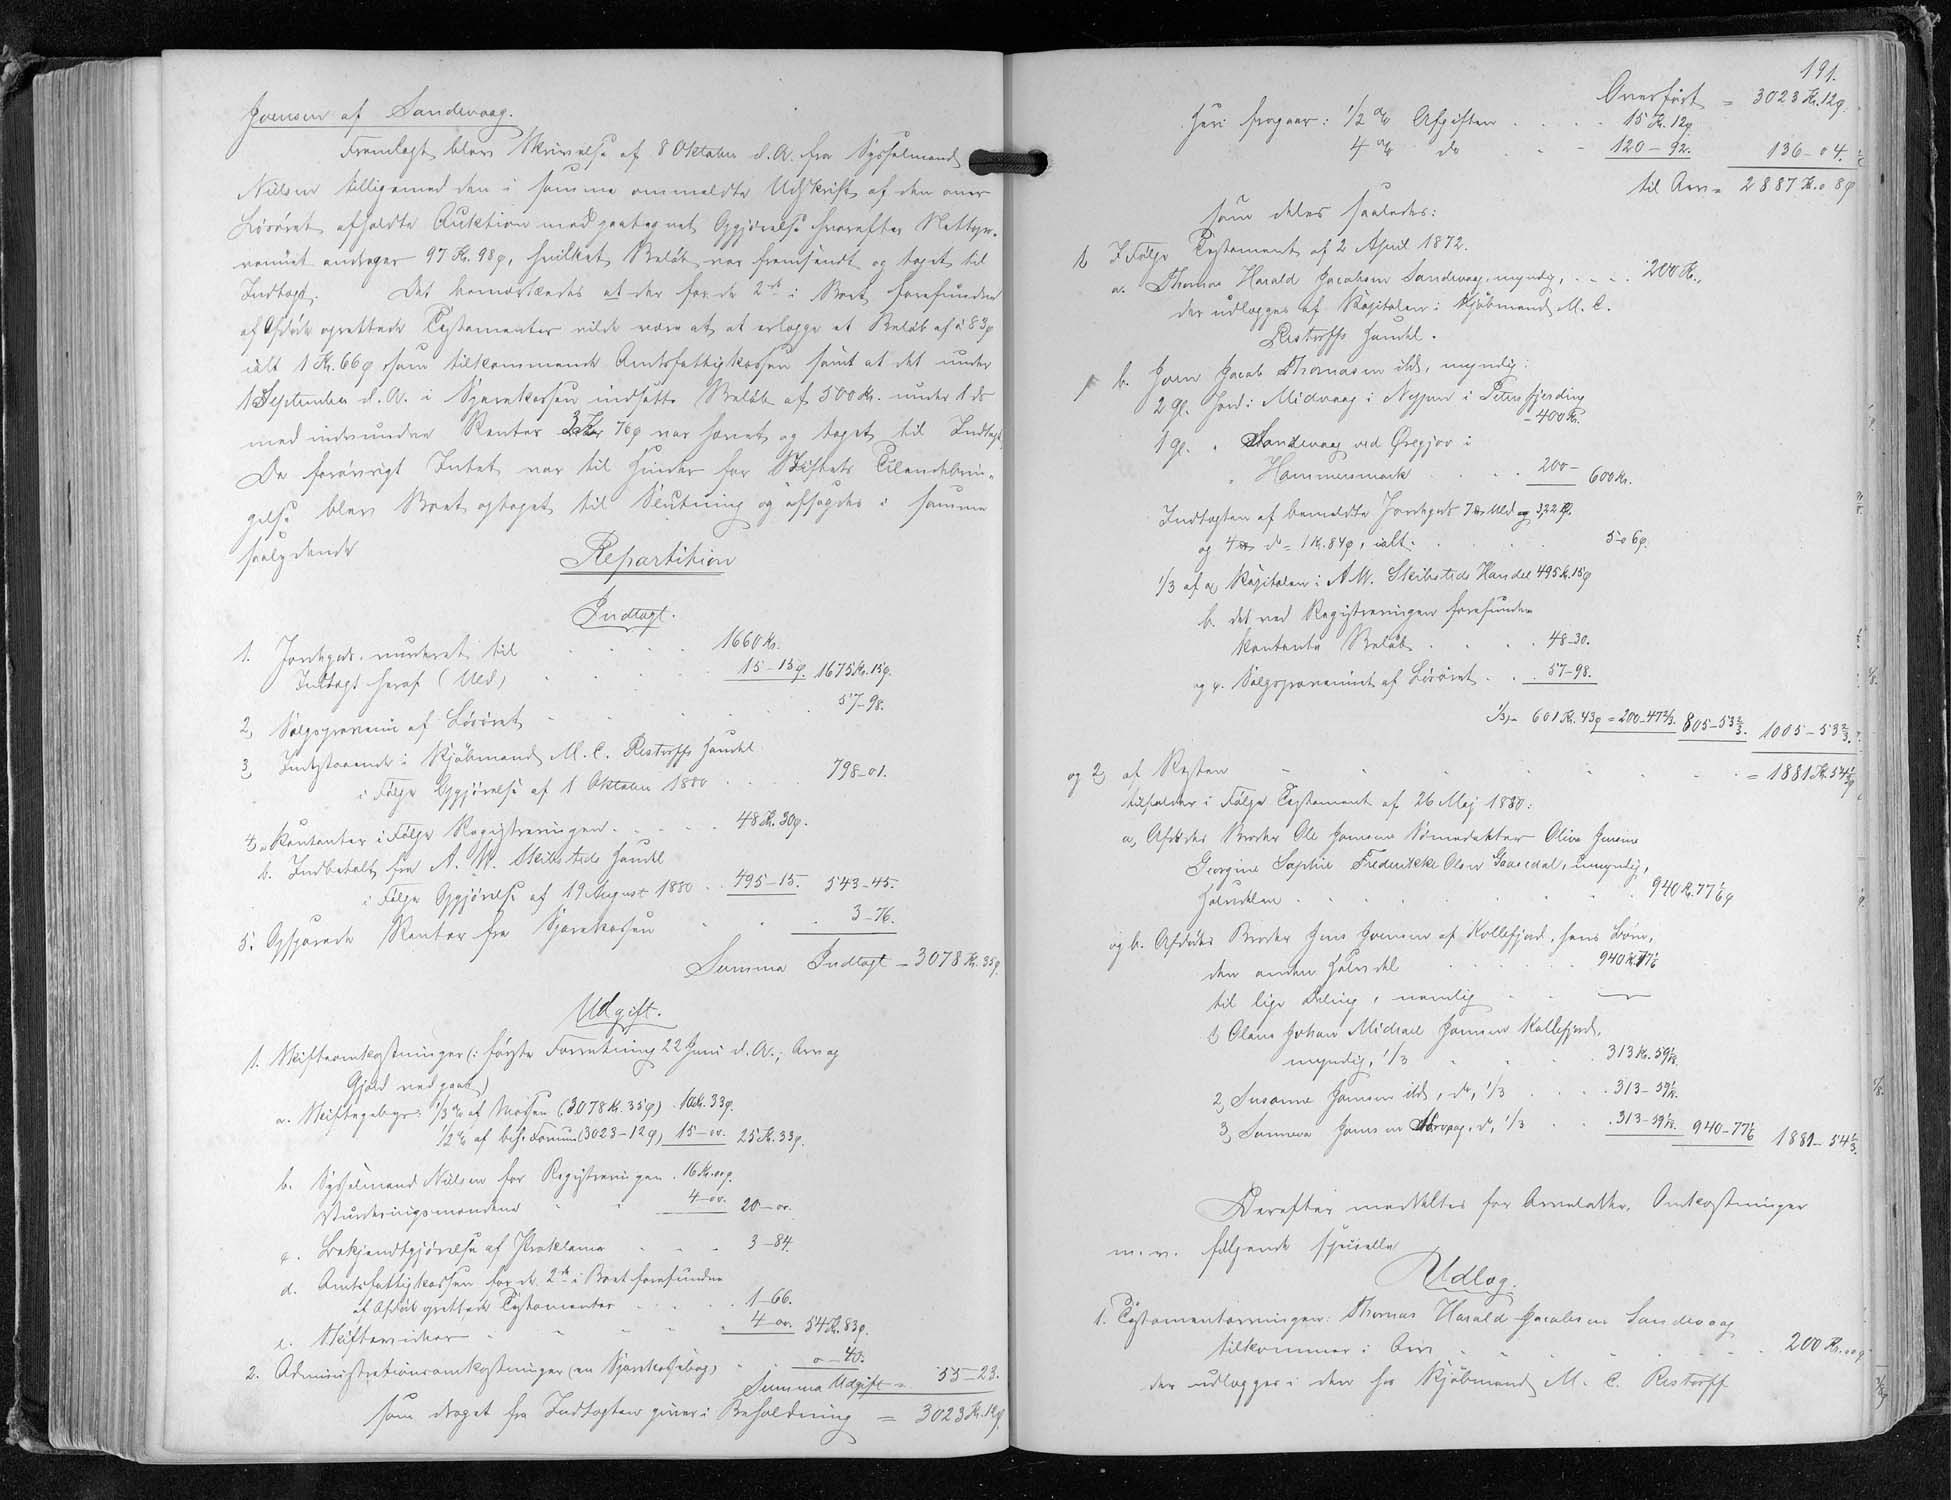 Joensen af Sandevaag.
Fremlagt blev Skrivelse af 8 Oktober d. A. fra Sysselmand
Nielsen tilligemed den i samme ommeldte Udskrift af den over
Løsøret afholdte Auktion med paategnet Opgjørelse hvorefter Nettopro-
venuet andrager 97 Kr. 98 ø, hvilket Beløb var fremsendt og taget til
Indtægt. Det bemærkedes at der for de 2de i Boet forefundne
af Afdøde oprettede Testamenter vilde være at erlægge et Beløb af à 83 ø
ialt 1 Kr. 66 ø som tilkommende Amtsfattigkassen samt at det under
1 September d. A. i Sparekassen indsatte Beløb af 500 Kr. under 1 ds
med indvundne Renter 3 Kr 76 ø var hævet og taget til Indtægt
Da forøvrigt Intet var til Hinder for Skiftets Tilendebrin-
gelse blev Boet optaget til Slutning og afsagdes i samme
saalydende
Repartition
Indtægt.
1. Jordegods, vurderet til 1660 Kr.
Indtægt heraf (Uld) 15-15 ø. 1675 Kr. 15 ø.
2, Salgsprovenu af Løsøret 57-98.
3, Indestaaende i Kjøbmand M. C. Restorffs Handel
i Følge Opgjørelse af 1 Oktober 1880 798-01.
4, a. Kontanter i Følge Registreringen 48 Kr. 30 ø.
b. Indbetalt fra A. M. Skibsteds Handel
i Følge Opgjørelse af 19 August 1880 495-15. 543-45.
5. Opsparede Renter fra Sparekassen 3-76.
Summa Indtægt = 3078 Kr. 35 ø.
Udgift.
1. Skifteomkostninger (: første Forretning 22 Juni d. A.; Arv og
Gjæld vedgaaet)
a. Skiftegebyr: 1/3 % af Massen (3078 Kr. 35 ø) 10 Kr. 33 ø.
1/2 % af beh. Formue (3023-12 ø) 15-00. 25 Kr. 33 ø.
b. Sysselmand Nielsen for Registreringen 16 Kr. 00 ø.
Vurderingsmændene 4-00. 20-00.
c. Bekjendtgjørelse af Proklama 3-84.
d. Amtsfattigkassen for de 2de i Boet forefundne
af Afdøde oprettede Testamenter 1-66.
e. 4-00. 54 Kr. 83 ø.
2. Administrationsomkostninger (en Sparekassebog) 0-40.
Summa Udgift = 55-23.
som draget fra Indtægten giver i Beholdning = 3023 Kr. 12 ø.
191.
Overført = 3023 Kr. 12 ø.
Heri fragaar: 1/2 % Afgiften 15 Kr. 12 ø
4 % do 120-92. 136-04.
til Arv = 2887 Kr. 08 ø
som deles saaledes:
1, I Følge Testament af 2 April 1872.
a. Thomas Harald Jacobsen Sandevaag, myndig, 200 Kr.,
der udlægges af Kapitalen i Kjøbmand M. C.
Restorffs Handel.
b. Joen Jacob Thomasen ibd., myndig:
2 Gl. Jord i Midvaag i Neppen i Peters fjerding
400 Kr.
1 Gl. " Sandevaag ved Øregjov i
" Hammersmark 200- 600 Kr.
Indtægten af bemeldte Jordegods 7 Uld = 3,22 ø.
og 4 do = 1 Kr. 84 ø, ialt 5-06 ø.
1/3 af a, Kapitalen i A. M. Skibsteds Handel 495 Kr. 15 ø
b. det ved Registreringen forefundne
kontante Beløb 48-30.
og c. Salgsprovenuet af Løsøret 57-98.
1/3 = 601 Kr. 43 ø = 200-47 2/3. 805-53 2/3. 1005-53 2/3.
og 2, af Resten = 1881 Kr. 54 1/3 ø
tilfalder i Følge Testament af 26 Maj 1880:
a, Afdødes Broder Ole Joensens Sønnedatter Olivia Jensine
Georgine Sophie Frederikke Olsen Gaasedal, umyndig,
Halvdelen 940 Kr. 77 1/6 ø
og b. Afdødes Broder Jens Joensen af Kollefjord, hans Børn,
den anden Halvdel 940 Kr. 77 1/6
til lige Deling, nemlig
1, Olaus Johan Michael Jensen Kollefjord,
myndig, 1/3 313 Kr. 59 1/18.
2, Susanne Jensen ibd., do, 1/3 313-59 1/18.
3, Sunneva Jensen, do, 1/3 313-59 1/18. 940-77 1/6 1881-54 1/3.
Derefter meddeltes for Arvelodder, Omkostninger
m. v. følgende specielle
Udlæg.
1. Testamentarvingen: Thomas Harald Jacobsen Sandevaag
tilkommer i Arv 200 Kr. 00 ø
der udlægges i den hos Kjøbmand M. C. Restorff